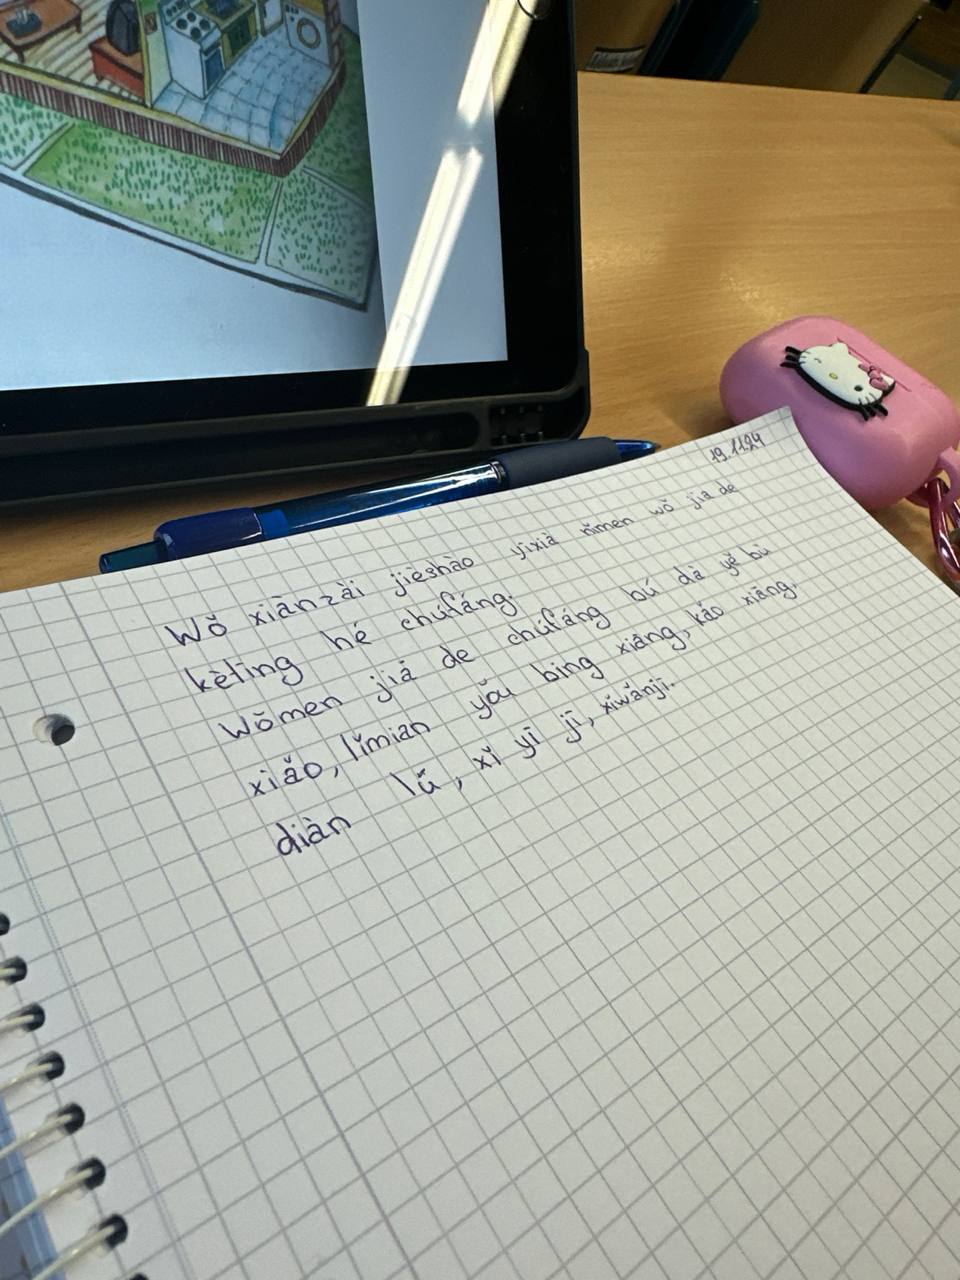 19.11.24
Wǒ xiànzài jièshào yíxià nǐmen wǒ jiā de
kètīng hé chúfáng.
Wǒmen jiā de chúfáng bú dà yě bù
xiǎo, lǐmian yǒu bīng xiāng, kǎo xiāng,
diàn lú, xǐ yī jī, xǐwǎnjī.